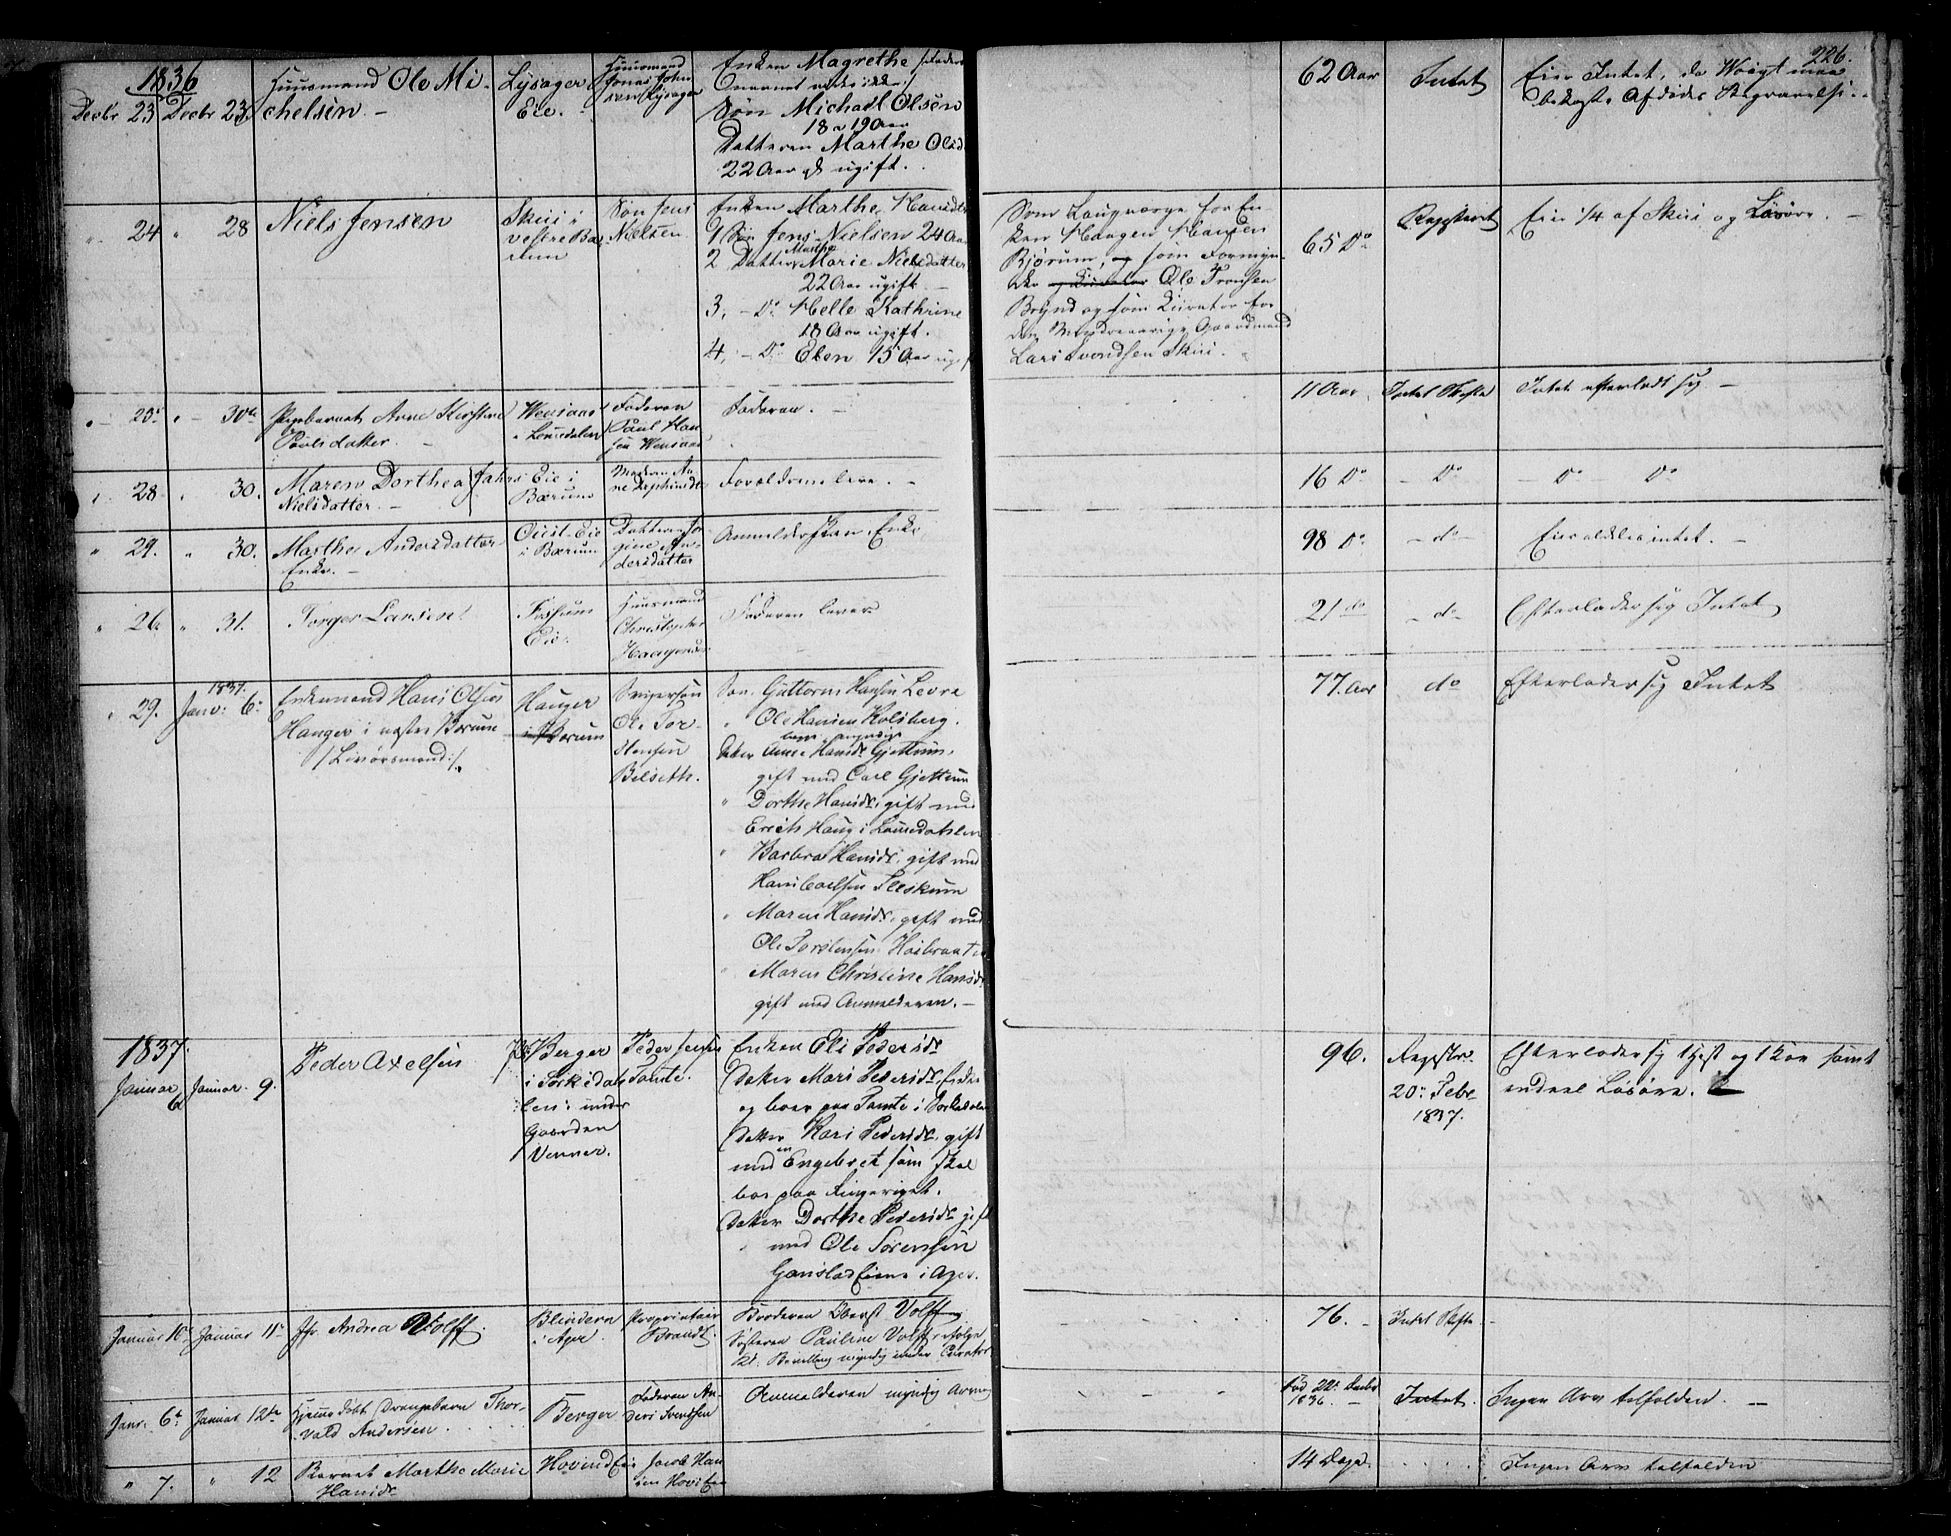 226.
1836
Decbr 23 Decbr 23. Huusmand Ole Mi-
chelsen. –
Lysager
Eie.
Huusmand
Jonas John
sen Lysager
Enken Magrethe
Søn Michael Olsen
18 a 19 Aar
Datteren Marthe Olsd
22 Aar og ugift.
62 Aar
Intet
Eier Intet, da Voigt maa
bekoste Afdødes Begravelse.
" 24 " 28 Niels Jensen
Skui i
vestre Bæ
rum
Søn Jens
Nielsen
Enken Marthe Hansdr
1 Søn Jens Nielsen 24 Aar
2 Datter Marthe Marie Nielsdatter
22 Aar ugift
3, – Do Helle Kathrine
18 Aar ugift.
4, – Do Elen 15 Aar ugift
Som Laugværge for En
ken Haagen Hansen
Bjørum, og som Formyn-
der og Curator Ole Fransen
Brynd og som Curator for
den Myndreaarige Gaardmand
Lars Svendsen Skui.
65 Do
Registeret
Eier 1/4 af Skui og Løsøre. –
" 20 " 30te Pigebarnet Anne Kirstine
Poulsdatter. –
Wensaas
i Lomedalen
Faderen
Paul Han
sen Wensaas
Faderen.
11 Aar
Intet Skifte
Intet efterladt sig –
" 28 " 30. Maren Dorthea
Nielsdatter. –
Jahrs Eie i
Bærum
Moderen An
ne Dephinsdr
Forældrene leve. –
16 Do – Do – Do Do
" 29. " 30. Marthe Andersdatter
Enke. –
Oust Eie
i Bærum
Datteren Jør
gine An-
dersdatter
Anmeldersken, Enke
98 Do – do –
Eier aldeles intet. –
" 26 " 31. Torger Larsen
Fossum
Eie.
Huusmand
Christopher
Haagensen
Faderen lever
21 do – do –
Efterlader sig Intet
1837.
" 29. Janv: 6: Enkemand Hans Olsen
Hauger i vestre Bærum
/: Livørsmand :/
Hauger
i Bærum
Svigersøn
Ole Tor-
stensen
Belseth.
Søn. Guttorm Hansen Levre
" Ole Hansen Kolsberg.
Datter Anne Hansdr Gjettum,
gift med Carl Gjettum
" Dorthe Hansdr, gift med
Erich Haug i Lomedahlen
" Barbra Hansdr. gift med
Hans Carlsen Sleskum
" Maren Hansdr, gift med
Ole Torstensen Haibraaten
" Maren Christine Hansdr
gift med Anmelderen. –
77. Aar
do
Efterlader sig Intet
1837.
Januar 6 Januar. 9. Peder Axelsen
Berger
i Sørkedale
len: under
Gaarden
Venner.
Peder Jensen
Tomte.
Enken Eli Pedersdr
Datter Mari Pedersdr, Enke
og boer paa Tomte i Sørkedalen
Datter Kari Pedersdr, gift
med en Engebret som skal
boe paa Ringeriget.
Datter Dorthe Pedersdr gift
" med Ole Sørensen
Gonstad Eiene i Ager.
96.
Registr.
20: Febr
1837.
Efterlader sig 1 Hest og 1 Koe samt
endeel Løsøre.
Januar 10 Januar 11 Jfr. Andrea Wolff.
Blindern
i Ager
Proprietair
Brandt.
Broderen Oberst Volff og
Søsteren Pauline Volff, ifølge
Kl. Bevilling myndig under Curator
76. –
Intet Skifte –
Janr. 6te Januar 12te Hjemmedøbt Drengebarn Thor-
vald Andersen.
Berger
Faderen An-
ders Svendsen
Anmelderen myndig Arving
fød 22 Decbr
1836.
Intet.
Ingen Arv tilfalden. –
" 7. " 12 Barnet Marthe Marie
Hansdr.
Hovind Eie
Jacob Han
sen Hovi Eie
14 Dage.
Ingen Arv tilfalden